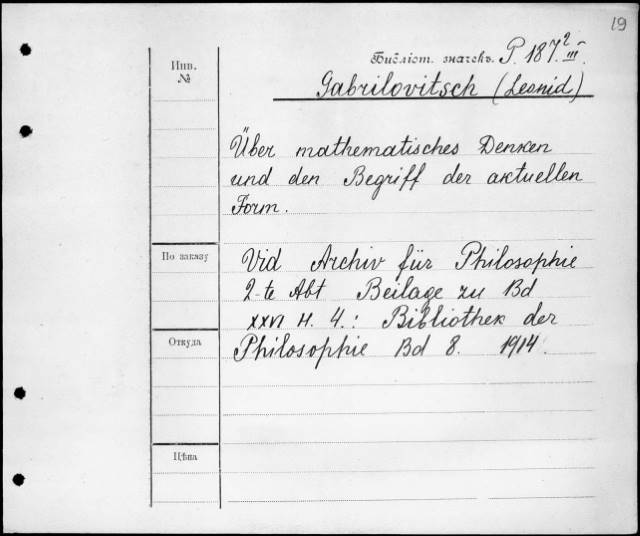 19
Библіот. значекъ. P. 187 2/III.
Инв.
№
Gabrilovitsch (Leonid)
Über mathematisches Denken
und den Begriff der aktuellen
Form.
По заказу
Vid Archiv für Philosophie
2-te Abt Beilage zu Bd
XXVI H. 4.: Bibliothek der
Откуда
Philosophie Bd 8. 1914.
Цѣна